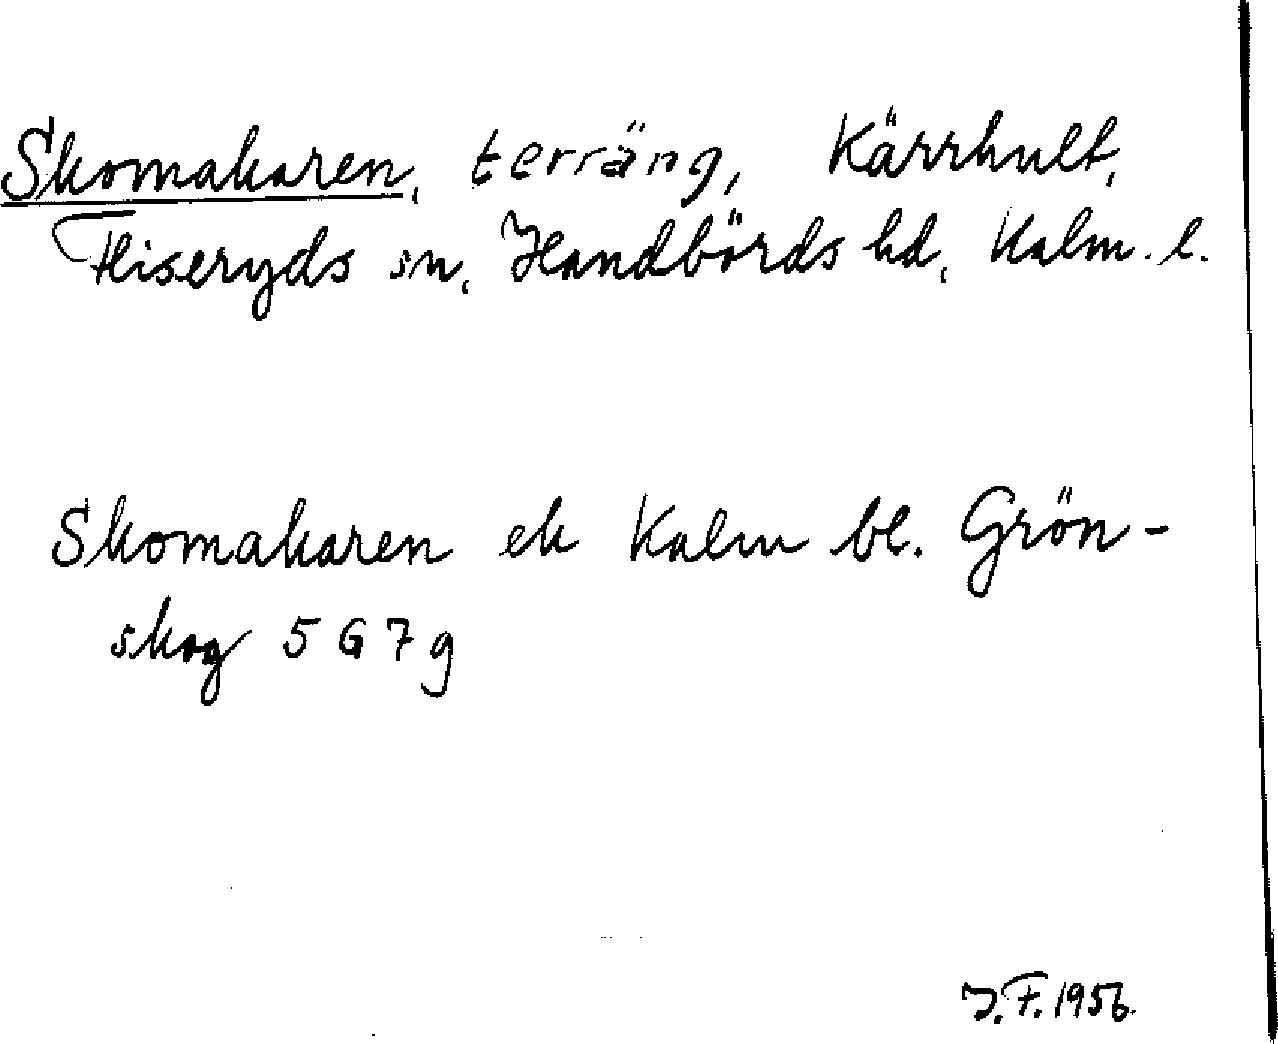 Skomakaren, terräng, Kärrhult,
Fliseryds sn, Handbörds hd, Kalm. l.
Skomakaren ek Kalm bl. Grön-
skog 5 G 7 g
J. F. 1956.